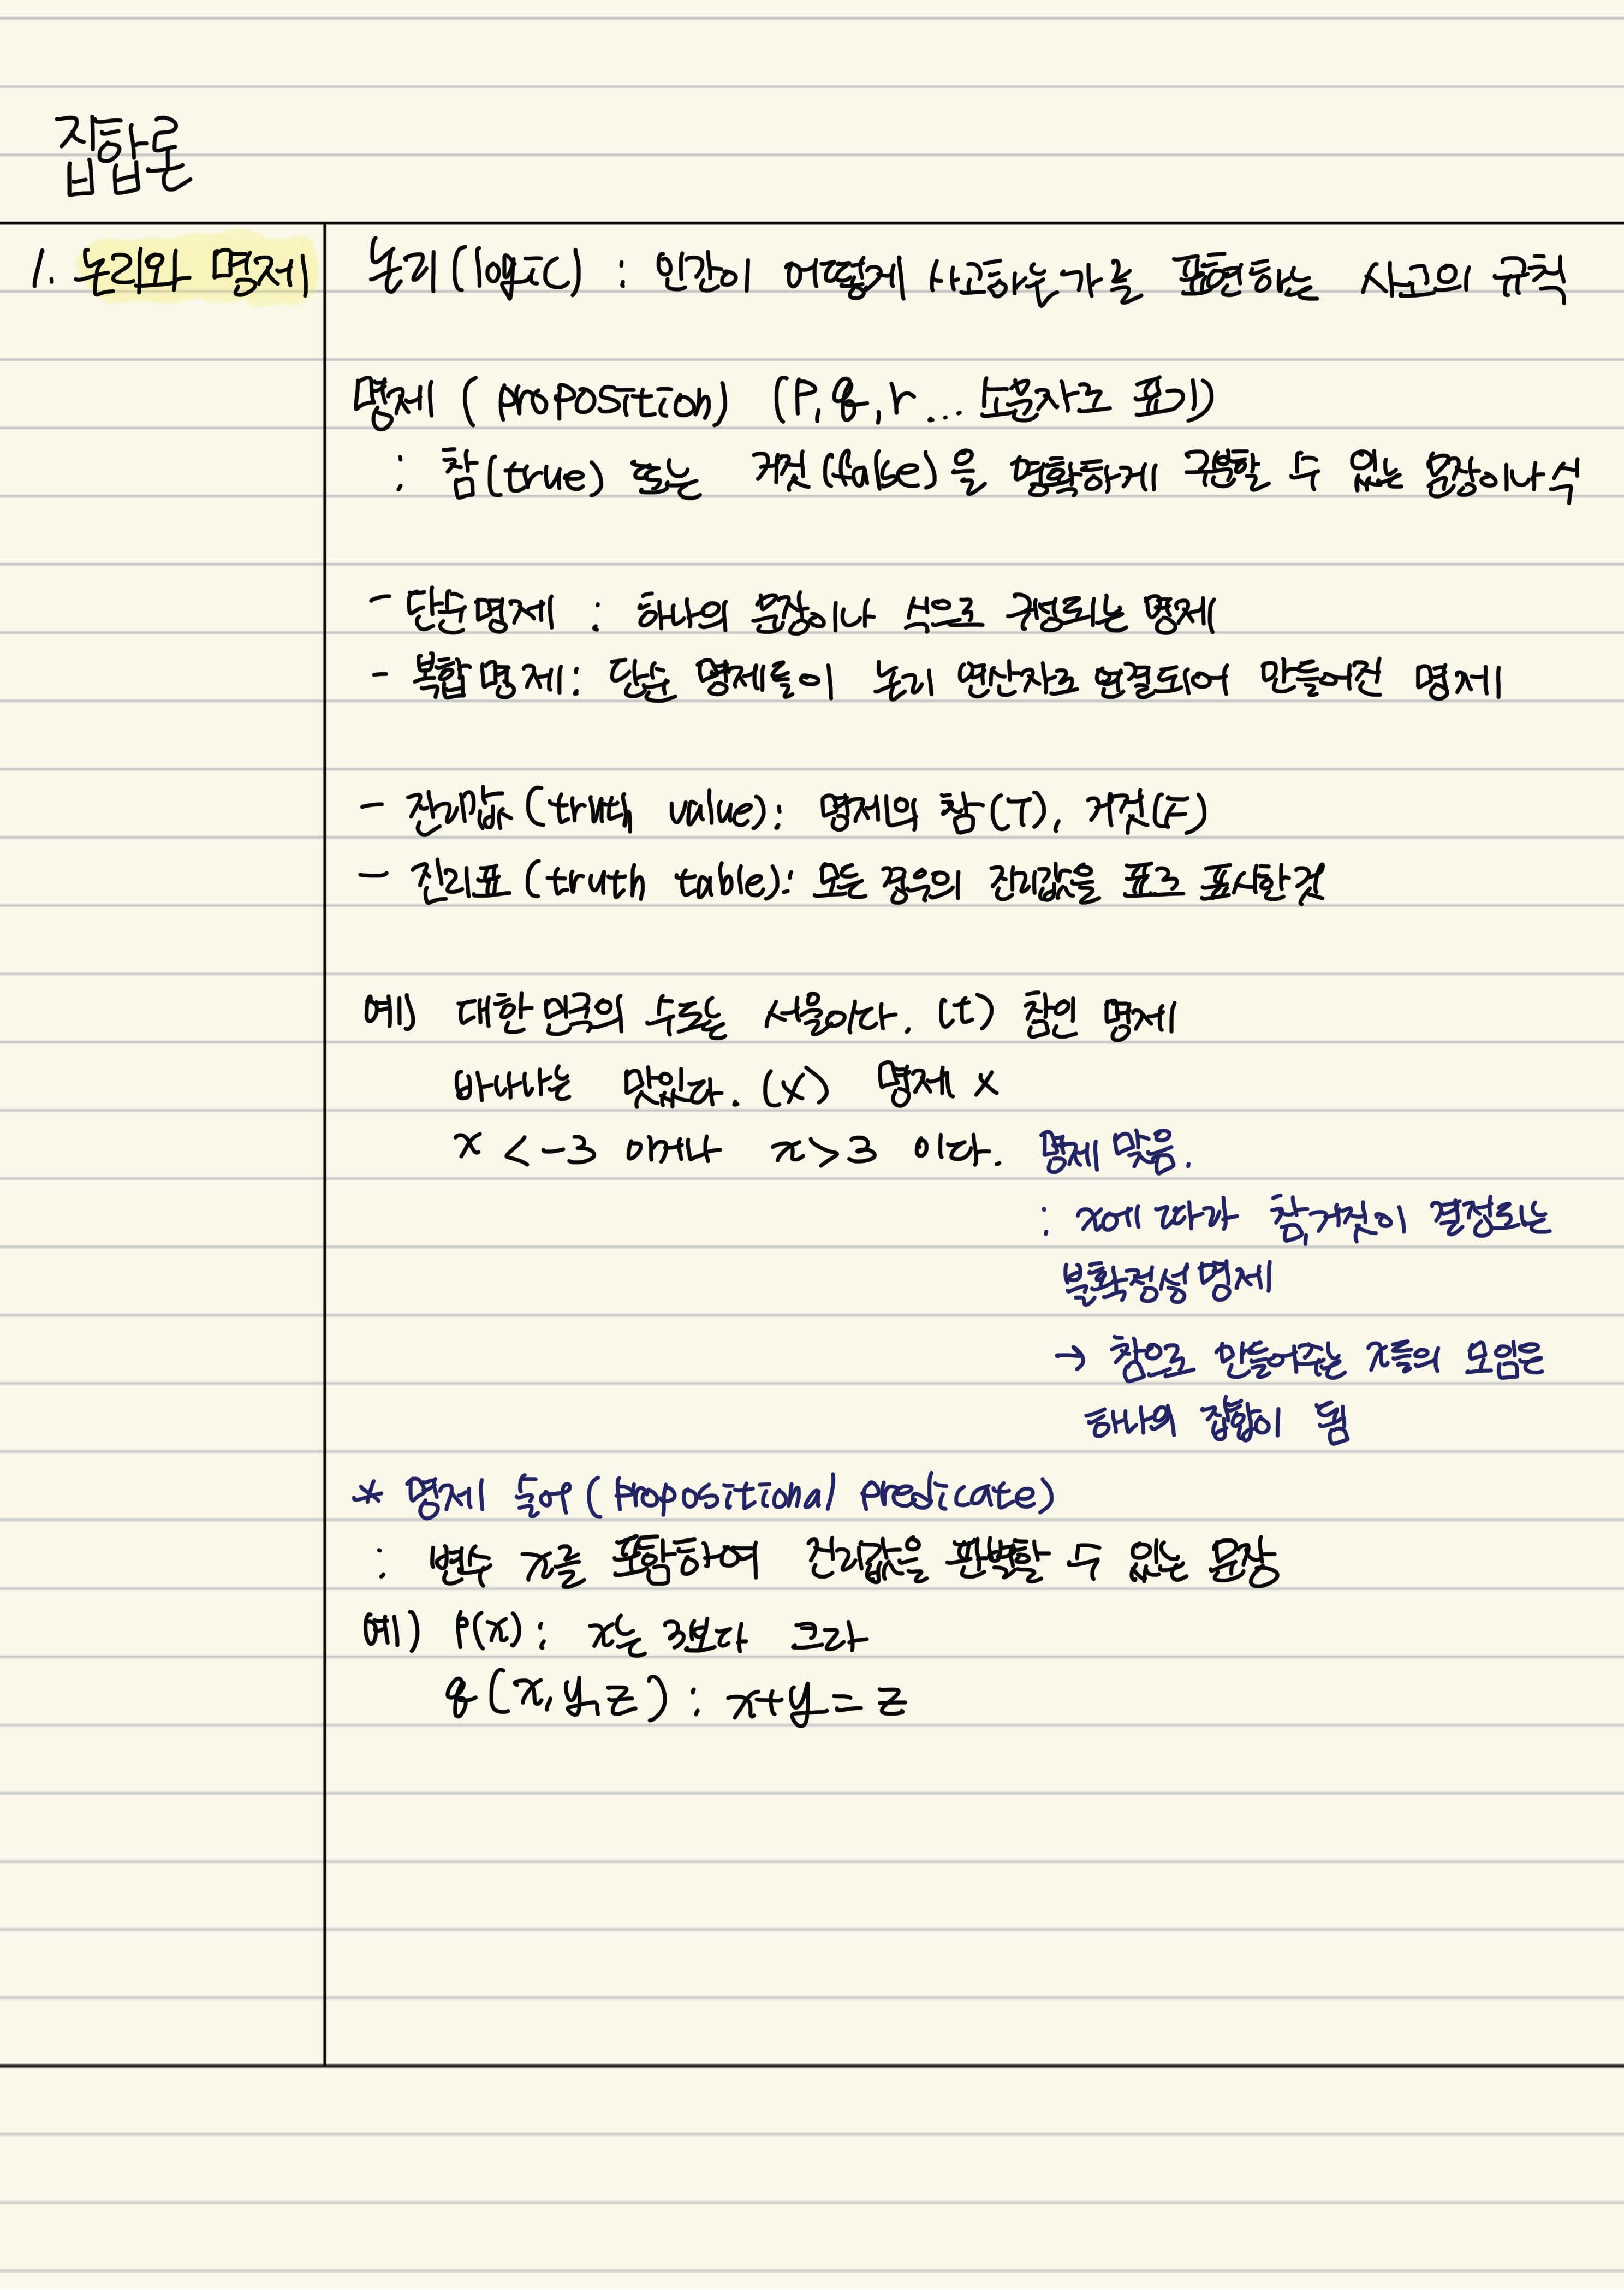 집합론
1. 논리와 명제
논리 (logic) : 인간이 어떻게 사고하는가를 표현하는 사고의 규칙
명제 ( proposition) (P, q, r ... 소문자로 표기)
: 참(true) 또는 거짓(false)을 명확하게 구분할 수 있는 문장이나 식
- 단순명제 : 하나의 문장이나 식으로 구성되는 명제
- 복합 명제 : 단순 명제들이 논리 연산자로 연결되어 만들어진 명제
- 진리값 (truth value) : 명제의 참(T), 거짓(F)
- 진리표 (truth table) : 모든 경우의 진리값을 표로 표시한것
예) 대한민국의 수도는 서울이다. (t) 참인 명제
바나나는 맛있다. (x) 명제 x
x < -3 이거나 x > 3 이다. 명제 맞음.
: x에 따라 참,거짓이 결정되는
불확정성 명제
→ 참으로 만들어주는 x들의 모임은
하나의 집합이 됨
* 명제 술어 ( propositional predicate)
: 변수 x를 포함하여 진리값을 판별할 수 있는 문장
예) P(x) : x는 3보다 크다
q (x, y, z) : x+y = z